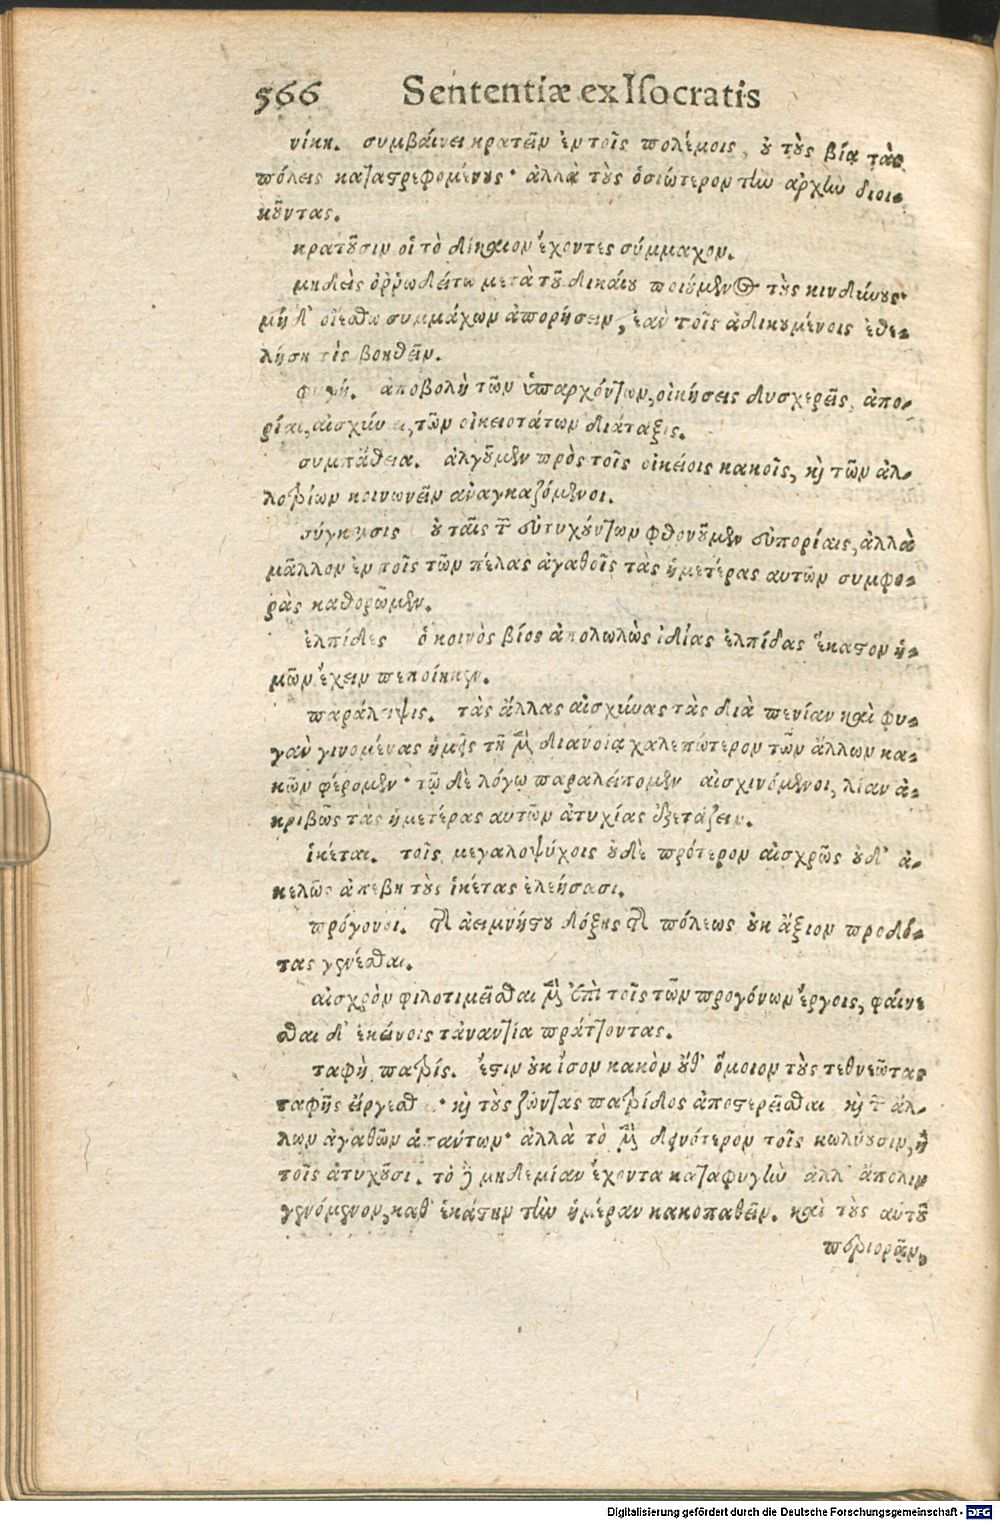 566 Sententiæ ex Isocratis
νίκη. συμβαίνει κρατεῖν ἐν τοῖς πολέμοις, ȣ̓ τȣ̀ς βίᾳ τὰς
πόλεις καταστρεφομένȣς· ἀλλὰ τȣ̀ς ὁσιώτερον τὴν ἀρχὴν διοι-
κȣ͂ντας.
κρατȣ͂σιν οἱ τὸ δίκαιον ἔχοντες σύμμαχον.
μηδεὶς ὀῤῥωδείτω μετὰ τȣ͂ δικαίȣ ποιȣ́μενος τȣ̀ς κινδύνȣς·
μήδ' οἰέσθω συμμάχων ἀπορήσειν, ἐὰν τοῖς ἀδικȣμένοις ἐθε-
λήσῃ τὶς βοηθεῖν.
φυγή. ἀποβολὴ τῶν ὑπαρχόντων, οἰκήσεις δυσχερεῖς, ἀπο-
ρίαι, αἰσχύναι, τῶν οἰκειοτάτων διάταξις.
συμπάθεια. ἀλγȣ͂μεν πρὸς τοῖς οἰκείοις κακοῖς, καὶ τῶν ἀλ-
λοτρίων κοινωνεῖν ἀναγκαζόμενοι.
σύγκρισις ȣ̓ ταῖς τῶν εὐτυχȣ́ντων φθονȣ͂μεν εὐπορίαις, ἀλλὰ
μᾶλλον ἐν τοῖς τῶν πέλας ἀγαθοῖς τὰς ἡμετέρας αυτῶν συμφο-
ρὰς καθορῶμεν.
ἐλπίδες ὁ κοινὸς βίος ἀπολωλὼς ἰδίας ἐλπίδας ἕκαστον ἡ-
μῶν ἔχειν πεποίηκεν.
παράλειψις. τὰς ἄλλας αἰσχύνας τὰς διὰ πενίαν καὶ φυ-
γὰν γινομένας ἡμεῖς τῇ μὲν διανοίᾳ χαλεπώτερον τῶν ἄλλων κα-
κῶν φέρομεν· τῷ δὲ λόγῳ παραλείπομεν αἰσχινόμενοι, λίαν ἀ-
κριβῶς τὰς ἡμετέρας αυτῶν ἀτυχίας ἐξετάζειν.
ἱκέται. τοῖς μεγαλοψύχοις ȣ̓δὲ πρότερον αἰσχρῶς ȣ̓δ' ἀ-
κελῶς ἀπέβη τȣ̀ς ἱκέτας ἐλεήσασι.
πρόγονοι. τῆς ἀειμνήστȣ δόξης τῆς πόλεως ȣ̓κ ἄξιον προδό-
τας γενέσθαι.
αἰσχρὸν φιλοτιμεῖσθαι μὲν ἐπὶ τοῖς τῶν προγόνων ἔργοις, φαίνε
σθαι δ' ἐκείνοις τἀναντία πράττοντας.
ταφὴ, πατρίς. ἔστιν ȣ̓κ ἴσον κακὸν ȣ̓́θ' ὅμοιον τȣ̀ς τεθνεῶτας
ταφῆς εἴργεσθαι· καὶ τȣ̀ς ζῶντας πατρίδος ἀποστερεῖσθαι καὶ τῶν ἄλ-
λων ἀγαθῶν ἁπάντων· ἀλλὰ τὸ μὲν δεινότερον τοῖς κωλύȣσιν, ἢ
τοῖς ἀτυχȣ͂σι. τὸ δὲ μηδεμίαν ἔχοντα καταφυγὴν ἀλλ' ἄπολιν
γενόμενον, καθ' ἑκάστην τὴν ἡμέραν κακοπαθεῖν. καὶ τȣ̀ς αυτȣ͂
περιορᾷν,
Digitalisierung gefördert durch die Deutsche Forschungsgemeinschaft - DFG